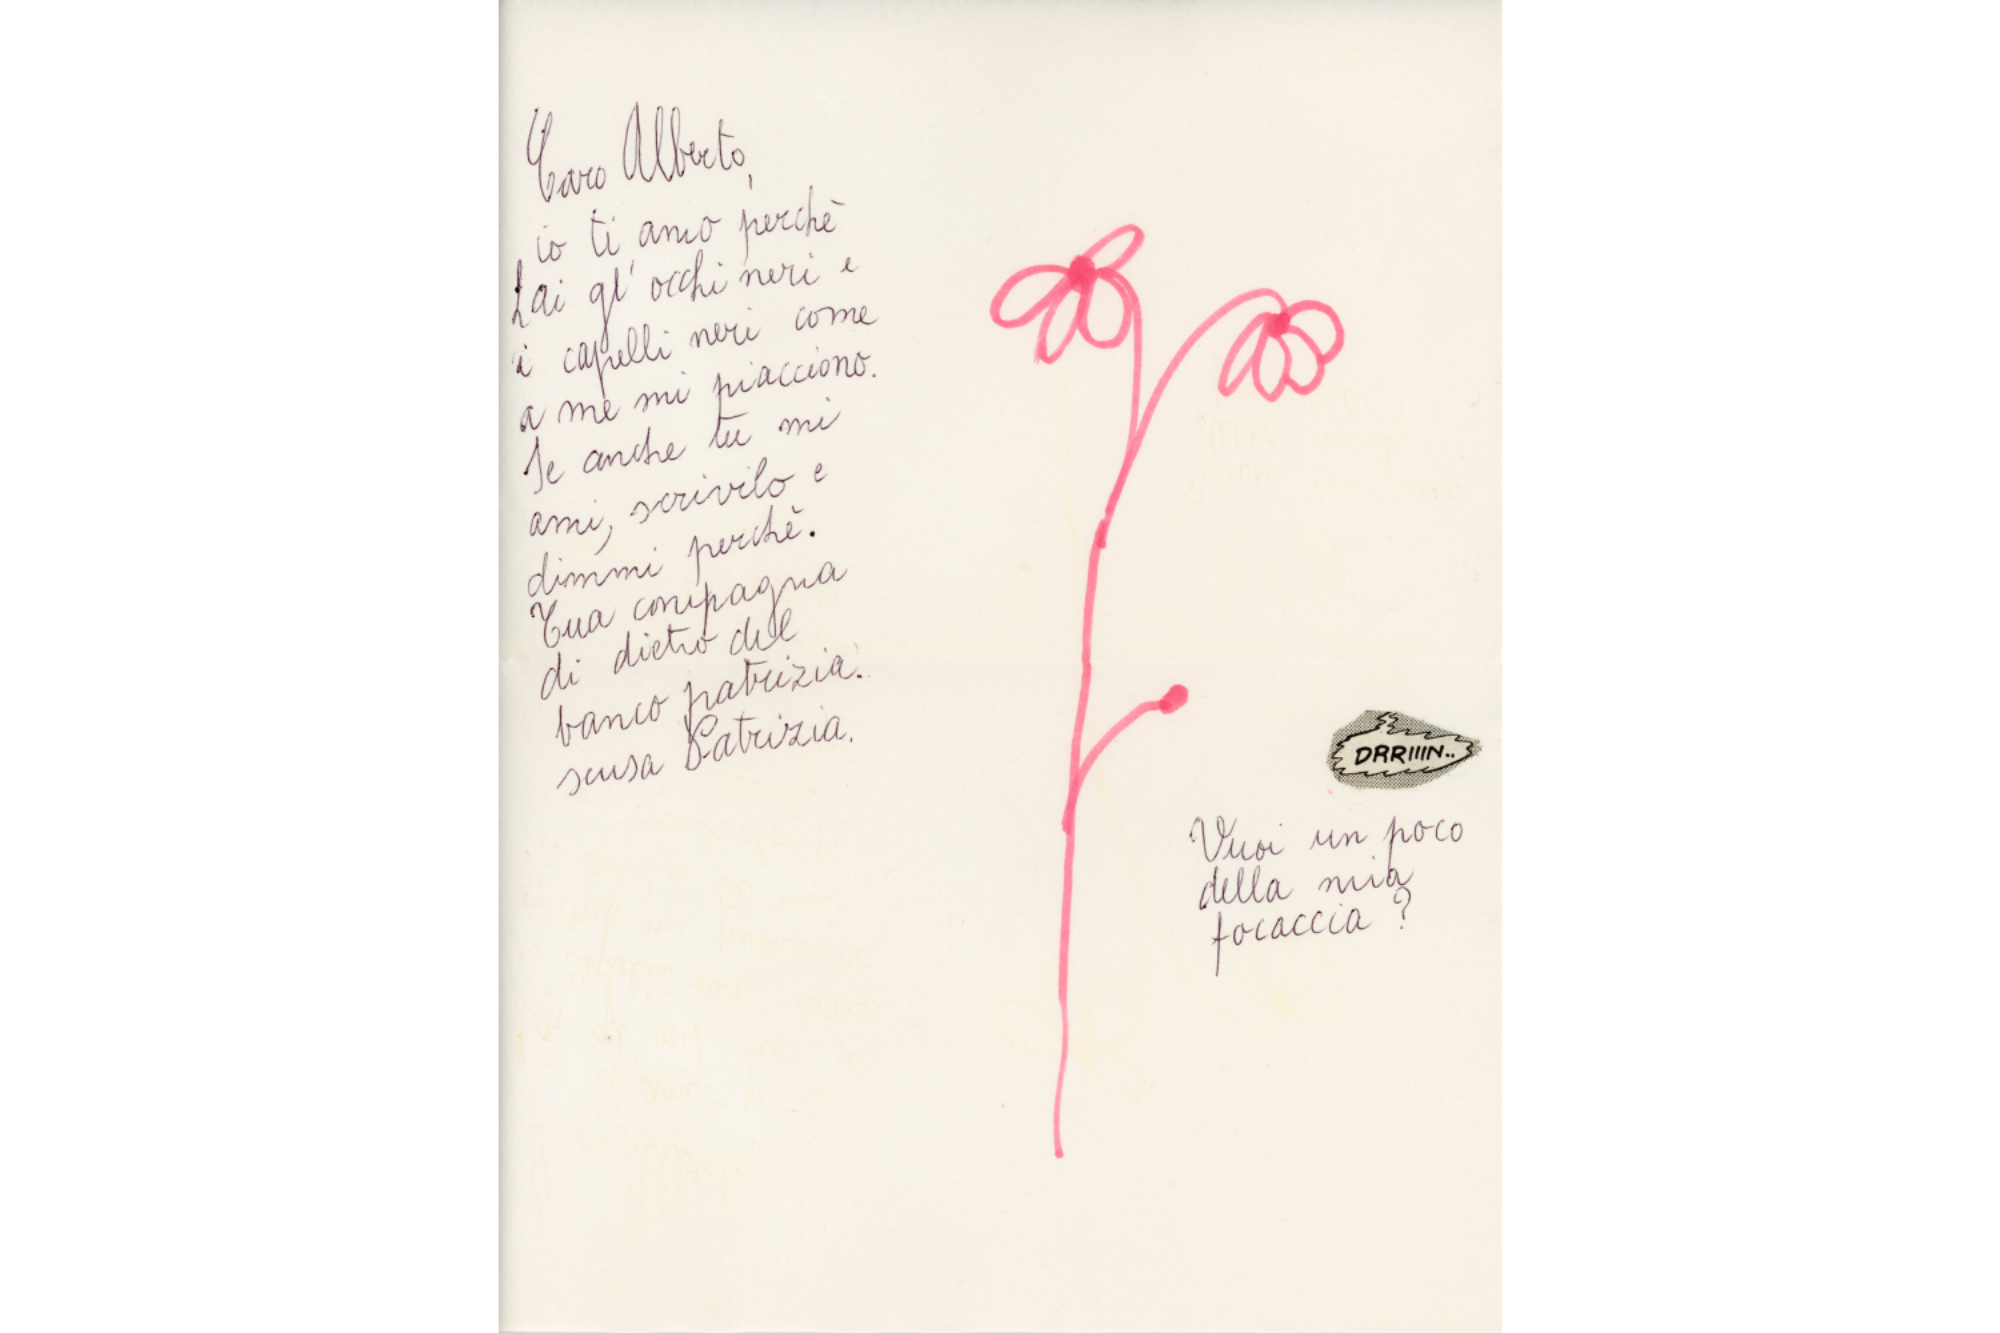 Caro Alberto,
io ti amo perchè
hai gl'occhi neri e
i capelli neri come
a me mi piacciono.
Se anche tu mi
ami, scrivilo e
dimmi perchè.
Tua compagna
di dietro del
banco patrizia.
scusa Patrizia.
DRRIIIN..
Vuoi un poco
della mia
focaccia?